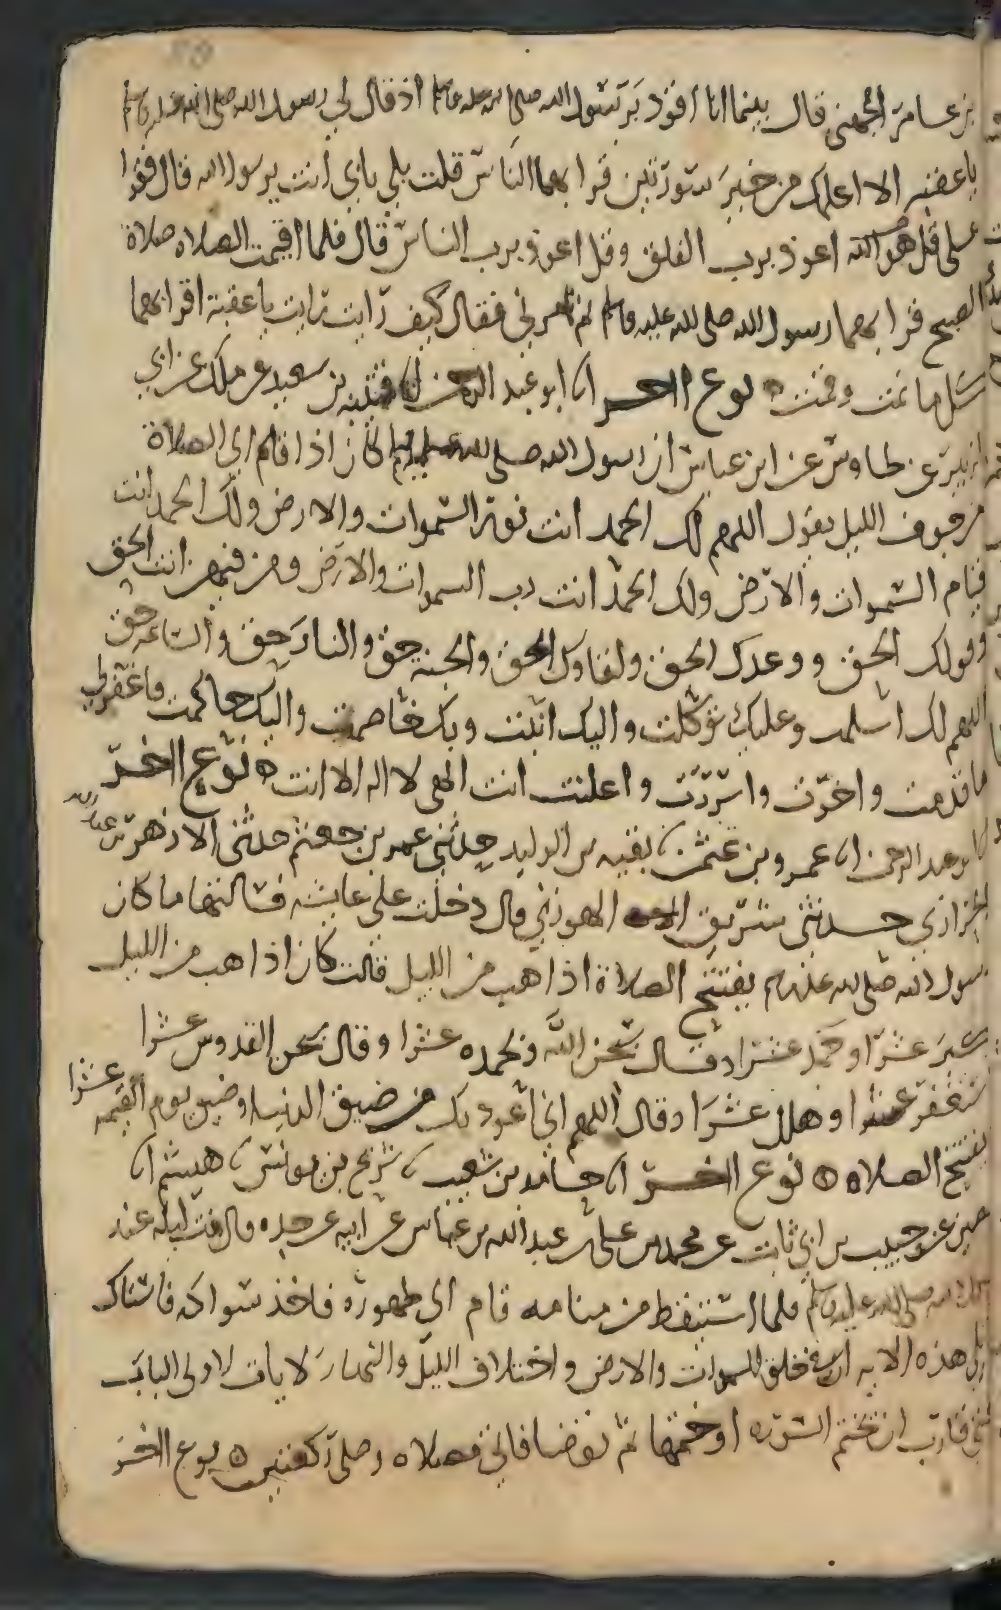 بن عامر الجهني قال بينما انا اقود برسول الله صلى الله عليه وسلم اذ قال لي رسول الله صلى الله عليه وسلم
يا عقبه الا اعلمك من خير سورتين قرا بهما الناس قلت بلى بابي انت يرسول الله قال فقرا
على قل هو الله اعوذ برب الفلق وقل اعوذ برب الناس قال فلما اقيمت الصلاه صلاة
الصبح قرا بهما رسول الله صلى الله عليه وسلم ثم مر بي فقال كيف رايت رايت يا عقبة اقرا بهما
كل ما نمت وقمت ۞ نوع اخر انا ابو عبد الرحمن انا قتيبه بن سعيد عن ملك عن ابي
الزبير عن طاوس عن ابن عباس ان رسول الله صلى الله عليه وسلم كان اذا قام الى الصلاة
من جوف الليل يقول اللهم لك الحمد انت نور السموات والارض ولك الحمد انت
قيام السموات والارض ولك الحمد انت رب السموات والارض ومن فيهن انت الحق
وقولك الحق ووعدك الحق ولقاوك الحق والجنه حق والنار حق والساعه حق
اللهم لك اسلمت وعليك توكلت واليك انبت وبك خاصمت واليك حاكمت فاغفر لي
ما قدمت واخرت واسررت واعلنت انت الهي لا اله الا انت ۞ نوع اخر
عبد الرحمن انا عمرو بن عثمن نا بقيه بن الوليد حدثني عمر بن جعثم حدثني الازهر بن عبد الله
الحرازي حدثني شريق الهوزني قال دخلت على عايشه فسالتها ما كان
رسول الله صلى الله عليه وسلم يفتتح الصلاة اذا هب من الليل قالت كان اذا هب من الليل
كبر عشرا وحمد عشرا وقال سبحن الله وبحمده عشرا وقال سبحن القدوس عشرا
استغفر عشرا وهلل عشرا وقال اللهم اني اعوذ بك من ضيق الدنيا وضيق يوم القيمه عشرا
يفتتح الصلاه ۞ نوع اخر انا حامد بن شعيب نا سريج بن يونس نا هشيم انا
حصين عن حبيب بن ابي ثابت عن محمد بن علي بن عبد الله بن عباس عن ابيه عن جده قال بت ليله عند
رسول الله صلى الله عليه وسلم فلما استيقظ من منامه قام الى طهوره فاخذ سواكه فاستاك
تلى هذه الايه ان في خلق السموات والارض واختلاف الليل والنهار لايات لاولى الالباب
حتى قارب ان يختم السوره او ختمها ثم توضا فاتى مصلاه وصلى ركعتين ۞ نوع اخر